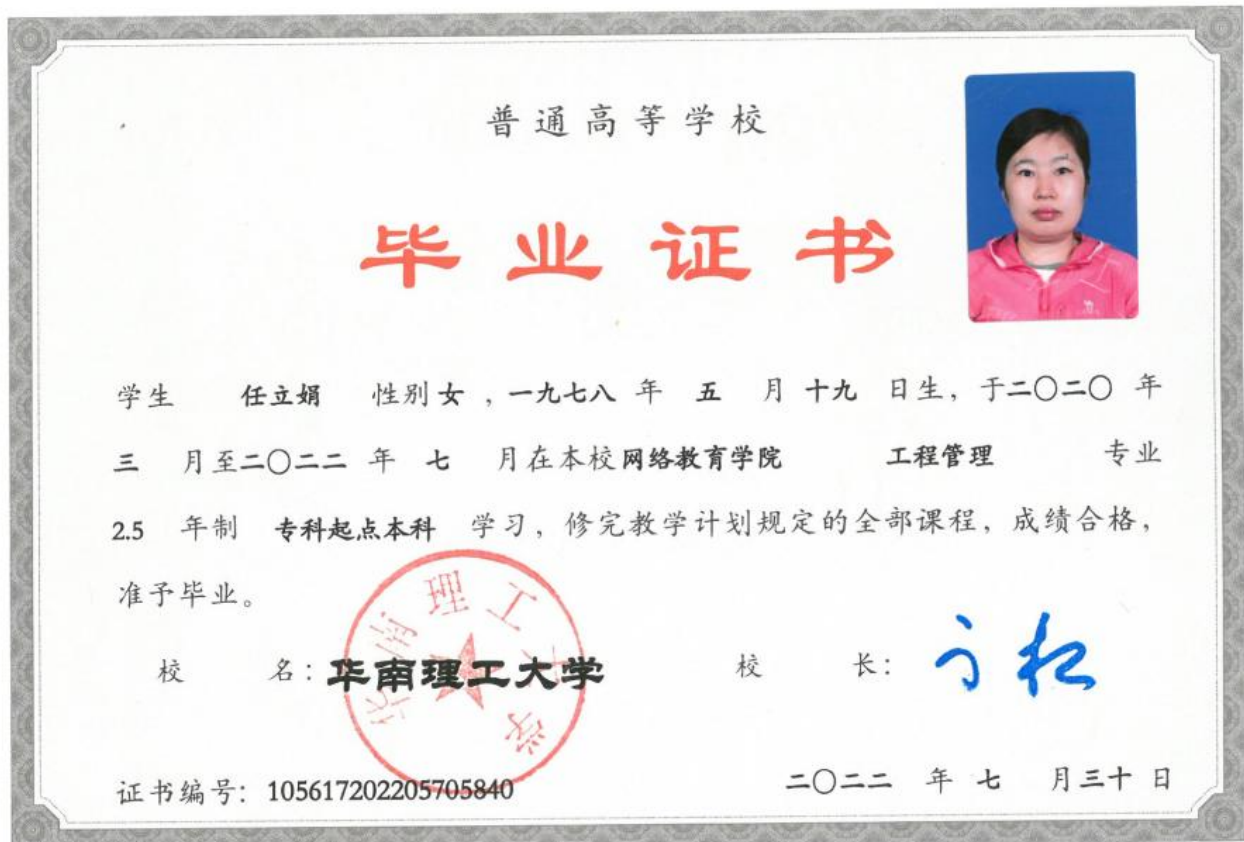 普通高等学校
毕业证书
学生 任立娟 性别 女 , 一九七八 年 五 月 十九 日生, 于二〇二〇 年
三 月至二〇二二 年 七 月在本校网络教育学院 工程管理 专业
2.5 年制 专科起点本科 学习, 修完教学计划规定的全部课程, 成绩合格,
准予毕业。
华南理工大学
校 名: 华南理工大学 校 长:
证书编号: 105617202205705840 二〇二二 年 七 月三十 日